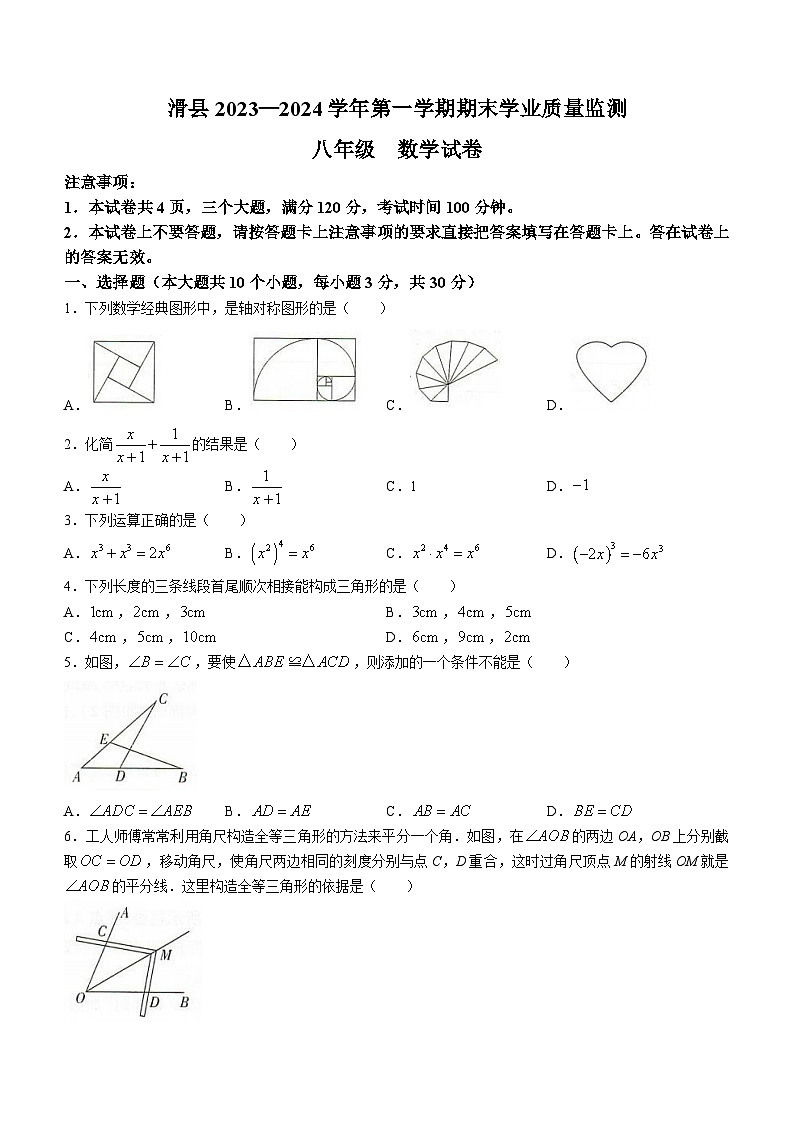 滑县 2023—2024 学年第一学期期末学业质量监测
八年级　数学试卷
注意事项：
1．本试卷共 4 页，三个大题，满分 120 分，考试时间 100 分钟。
2．本试卷上不要答题，请按答题卡上注意事项的要求直接把答案填写在答题卡上。答在试卷上
的答案无效。
一、选择题（本大题共 10 个小题，每小题 3 分，共 30 分）
1．下列数学经典图形中，是轴对称图形的是（　　）
A． B． C． D．
2．化简 x/(x+1) + 1/(x+1) 的结果是（　　）
A． x/(x+1) B． 1/(x+1) C．1 D．−1
3．下列运算正确的是（　　）
A．x³ + x³ = 2x⁶ B．(x²)⁴ = x⁶ C．x² · x⁴ = x⁶ D．(−2x)³ = −6x³
4．下列长度的三条线段首尾顺次相接能构成三角形的是（　　）
A．1cm，2cm，3cm B．3cm，4cm，5cm
C．4cm，5cm，10cm D．6cm，9cm，2cm
5．如图，∠B = ∠C，要使△ABE≌△ACD，则添加的一个条件不能是（　　）
C
E
A D B
A．∠ADC = ∠AEB B．AD = AE C．AB = AC D．BE = CD
6．工人师傅常常利用角尺构造全等三角形的方法来平分一个角．如图，在∠AOB的两边 OA，OB 上分别截
取OC = OD，移动角尺，使角尺两边相同的刻度分别与点 C，D 重合，这时过角尺顶点 M 的射线 OM 就是
∠AOB的平分线．这里构造全等三角形的依据是（　　）
A
C
M
O D B